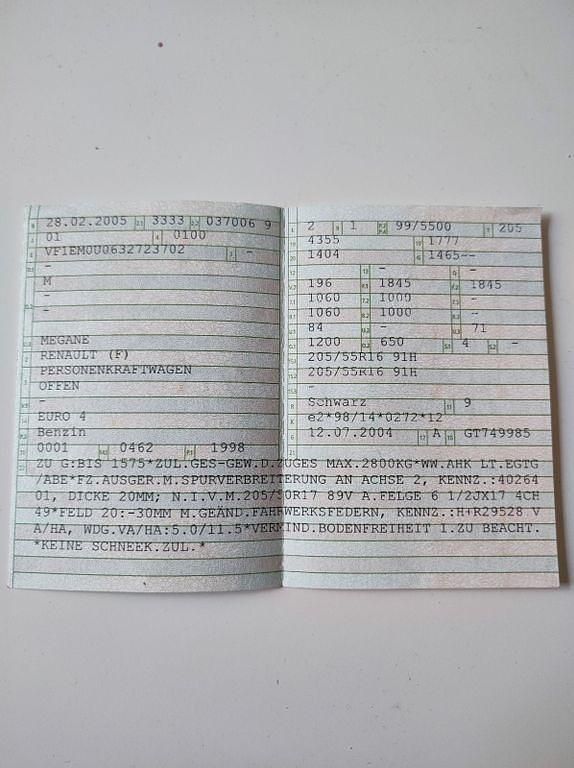 28.02.2005 3333 037006 9
01 0100
VF1EM0U0632723702 -
-
M
-
-
MEGANE
RENAULT (F)
PERSONENKRAFTWAGEN
OFFEN
-
EURO 4
Benzin
0001 0462 1998
2 1 99/5500 205
4355 1777
1404 1465--
- -
196 1845 1845
1060 1000 -
1060 1000 -
84 - 71
1200 650 4 -
205/55R16 91H
205/55R16 91H
-
Schwarz 9
e2*98/14*0272*12
12.07.2004 A GT749985
ZU G:BIS 1575*ZUL.GES-GEW.D.ZUGES MAX.2800KG*WW.AHK LT.EGTG
/ABE*FZ.AUSGER.M.SPURVERBREITERUNG AN ACHSE 2, KENNZ.:40264
01, DICKE 20MM; N.I.V.M.205/50R17 89V A.FELGE 6 1/2JX17 4CH
49*FELD 20:-30MM M.GEÄND.FAHRWERKSFEDERN, KENNZ.:H+R29528 V
A/HA, WDG.VA/HA:5.0/11.5*VERMIND.BODENFREIHEIT I.ZU BEACHT.
*KEINE SCHNEEK.ZUL.*